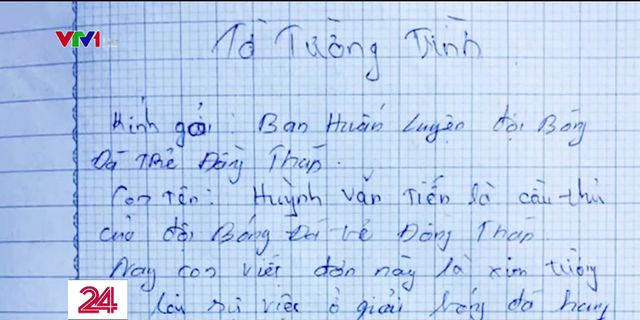 VTV1
Tờ Tường Trình
Kính gởi: Ban Huấn Luyện đội Bóng
Đá trẻ Đồng Tháp.
Con tên: Huỳnh Văn Tiến là cầu thủ
của đội Bóng Đá trẻ Đồng Tháp.
Nay con viết đơn này là xin tường
sự việc ở giải bóng đá hạng
24